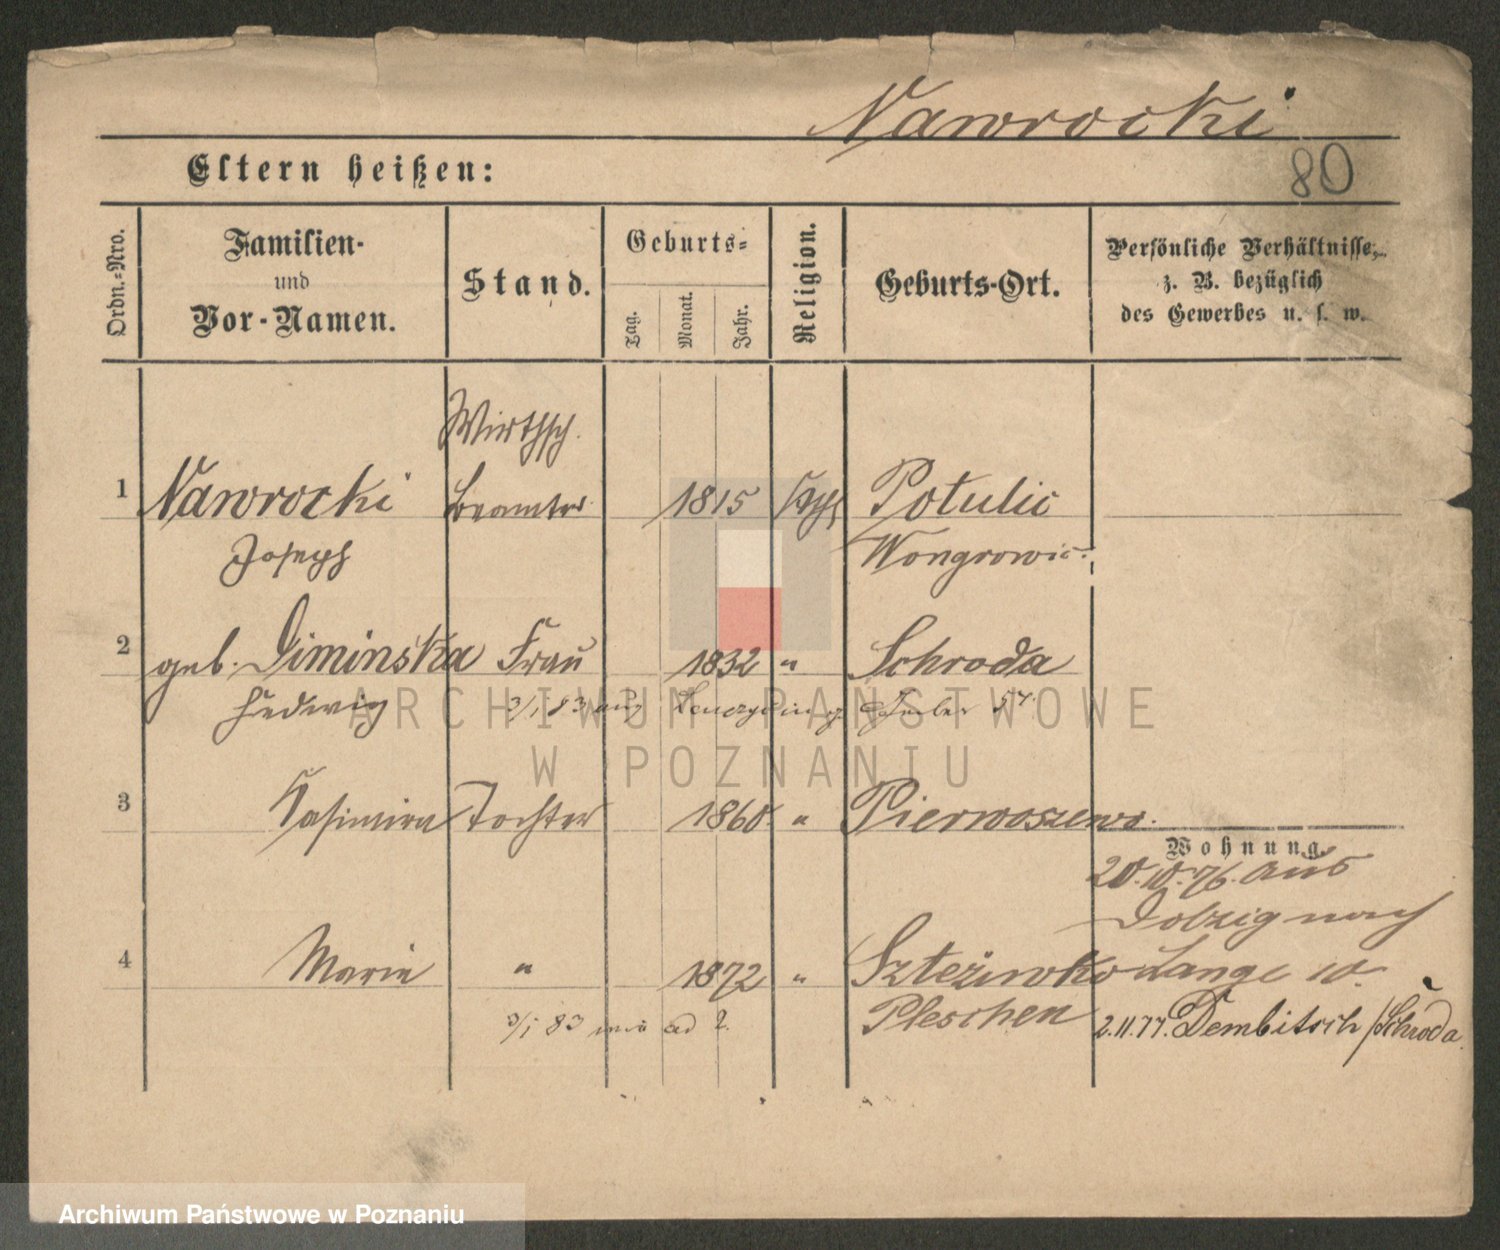 Nawrocki
Eltern heißen:
80
Ordn.-Nro.
Familien-
und
Vor-Namen.
Stand.
Geburts-
Tag.
Monat.
Jahr.
Religion.
Geburts-Ort.
Persönliche Verhältnisse,
z. B. bezüglich
des Gewerbes u. s. w.
Wirthsch.
1 Nawrocki Beamter 1815 kath Potulic
Joseph Wongrowic.
2 geb. Diminska Frau 1832 " Schroda
Hedwig 3/1 83
3 Kasimira Tochter 1860. " Pierwoszewo.
Wohnung.
20.10.76. aus
Dolzig nach
4 Marie " 1872 " Lange 10.
3/1 83 ad 2. Pleschen 2.11.77. Dembitsch / Schroda.
ARCHIWUM PAŃSTWOWE
W POZNANIU
Archiwum Państwowe w Poznaniu